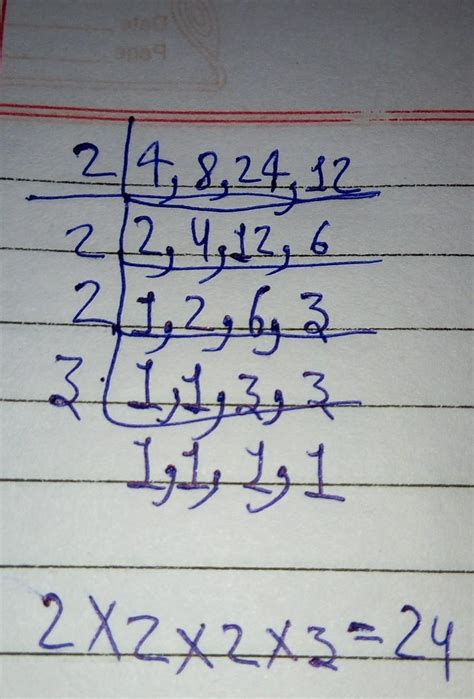 Date
Page
2 4, 8, 24, 12
2 2, 4, 12, 6
2 1, 2, 6, 3
3 1, 1, 3, 3
1, 1, 1, 1
2×2×2×3=24